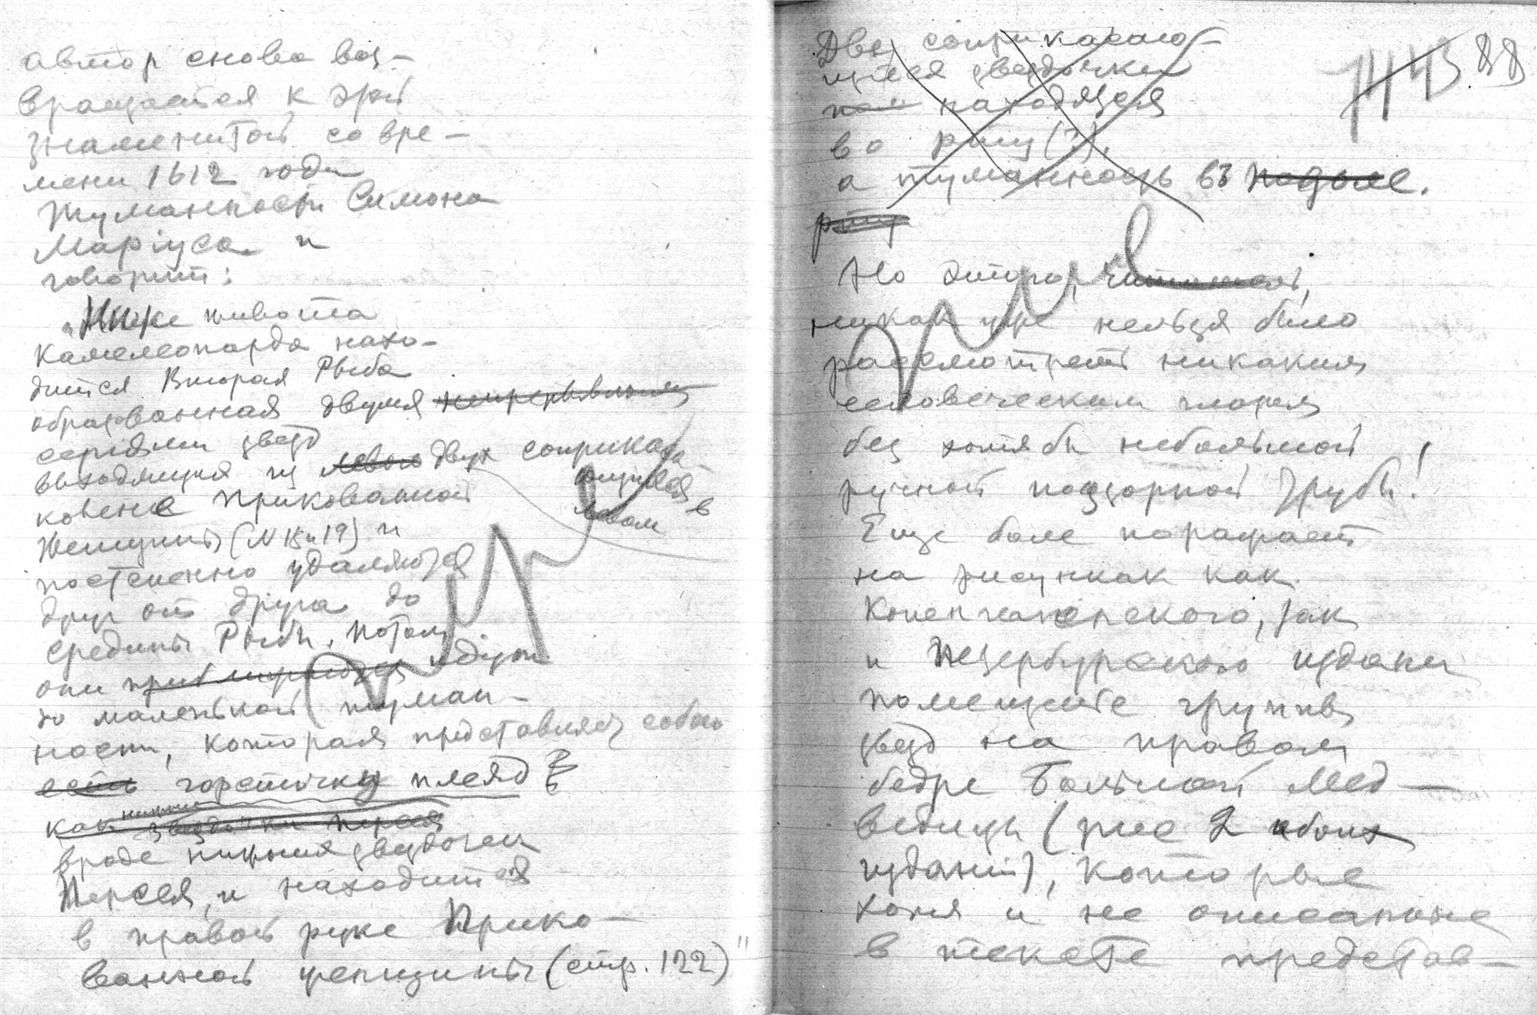 автор снова воз-
вращается к этой
знаменитой со вре-
мени 1612 года
туманности Симона
Маріуса и
говорит:
„Ниже живота
Камелеопарда нахо-
дится Вторая Рыба
образованная двумя непрерывными
серіями звезд
выходящия из левого двух соприкаса
ющихся в
левом
колене Прикованной
Женщины (N 18 и 19) и
постепенно удаляются
друг от друга до
средины Рыбы, потом
они приближаются идут
до маленькой туман-
ности, которая представляет собою
есть горсточку плеяд
как нижния звездочки Персея
вроде нижния звездочки
Персея, и находится
в правой руке Прико-
ванной женщины (стр. 122)"
Две соприкасаю-
щиеся звездочки
находящея
во рту (?),
а туманность въ подоле.
рту
Но этого, читатель,
никак уже нельзя было
рассмотреть никакия
человеческим глазом
без хотя бы небольшой
ручной подзорной трубы!
Еще боле поражает
на рисунках как
Копенгагенского, так
и Петербургского издания
помещение группы
звезд на правом
бедре Большой Мед-
ведицы (рис 2 обоих
изданий), которые
хотя и не описанные
в тексте представ-
143 88